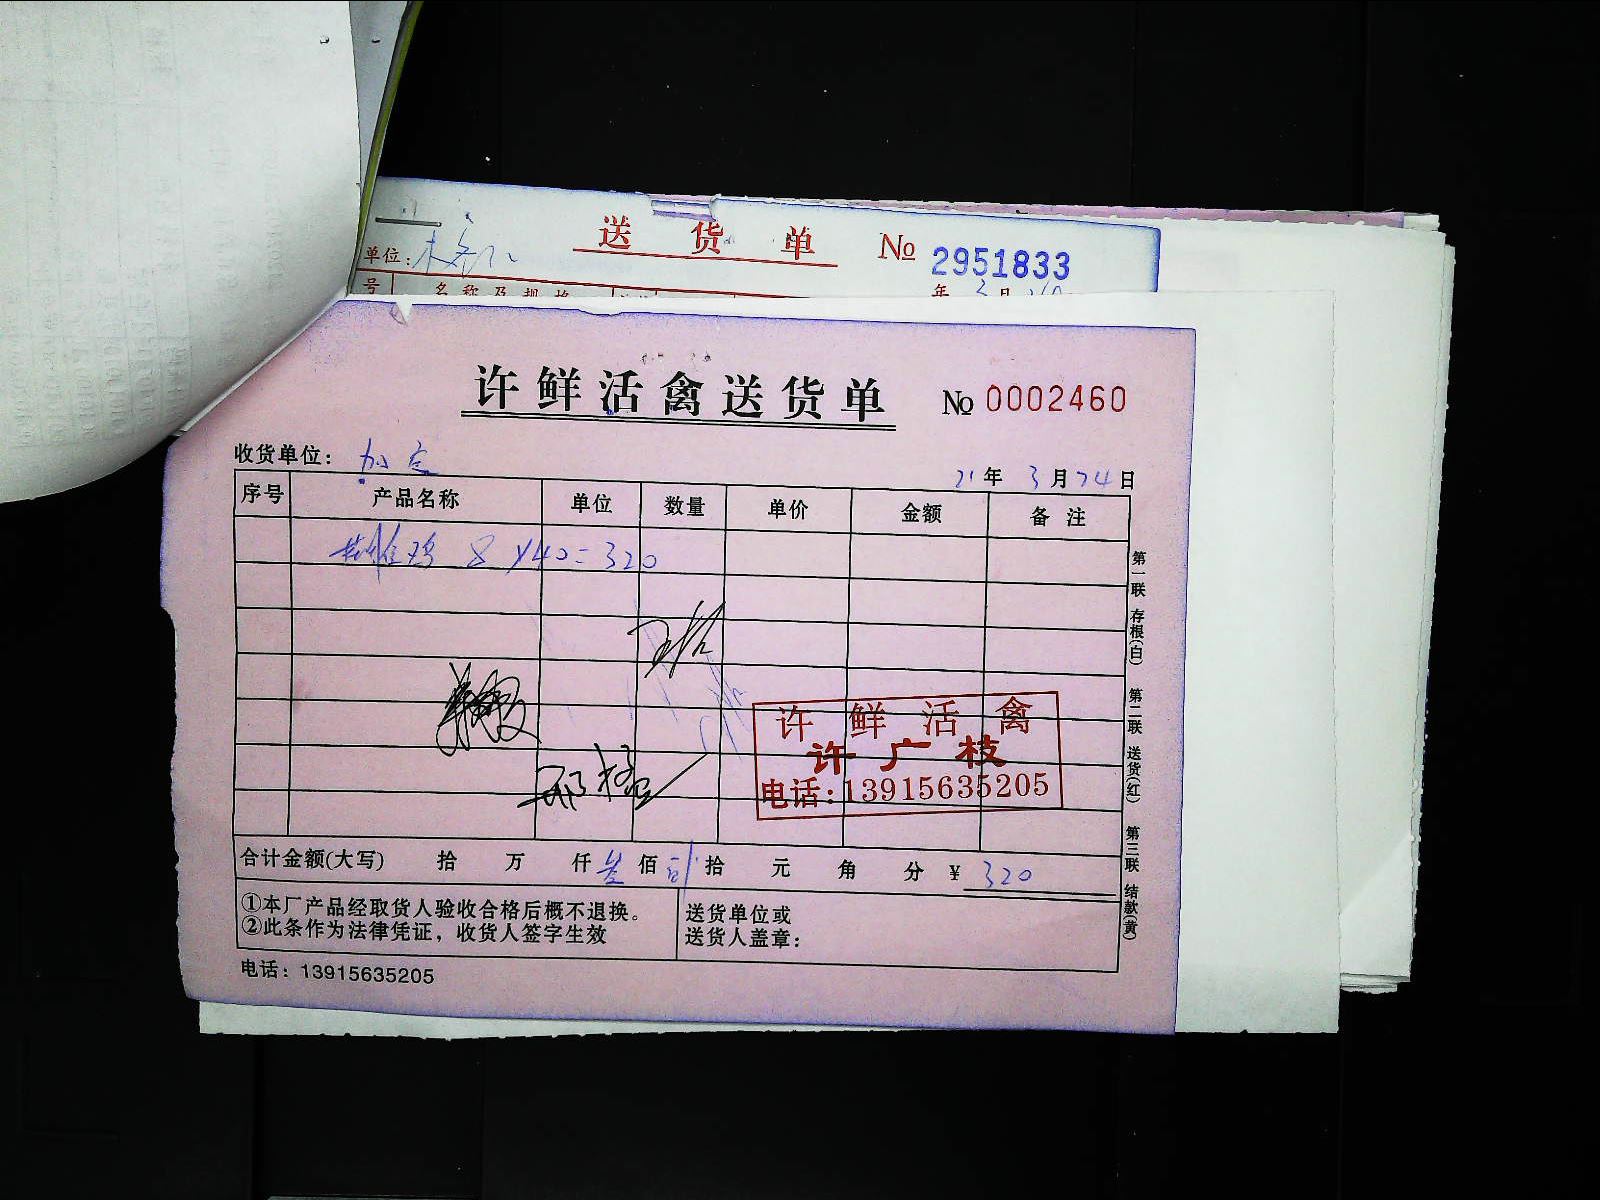 送 货 单 № 2951833
单位:
年 3月
号 名称及规格
许鲜活禽送货单 № 0002460
收货单位:
21年 3月24日
序号 产品名称 单位 数量 单价 金额 备注
鸡 8 ×40=320
许鲜活禽
许广枝
电话:13915635205
合计金额(大写) 拾 万 仟叁佰贰拾 元 角 分 ¥ 320
①本厂产品经取货人验收合格后概不退换。
②此条作为法律凭证，收货人签字生效
送货单位或
送货人盖章:
电话: 13915635205
第一联 存根(白)
第二联 送货(红)
第三联 结款(黄)